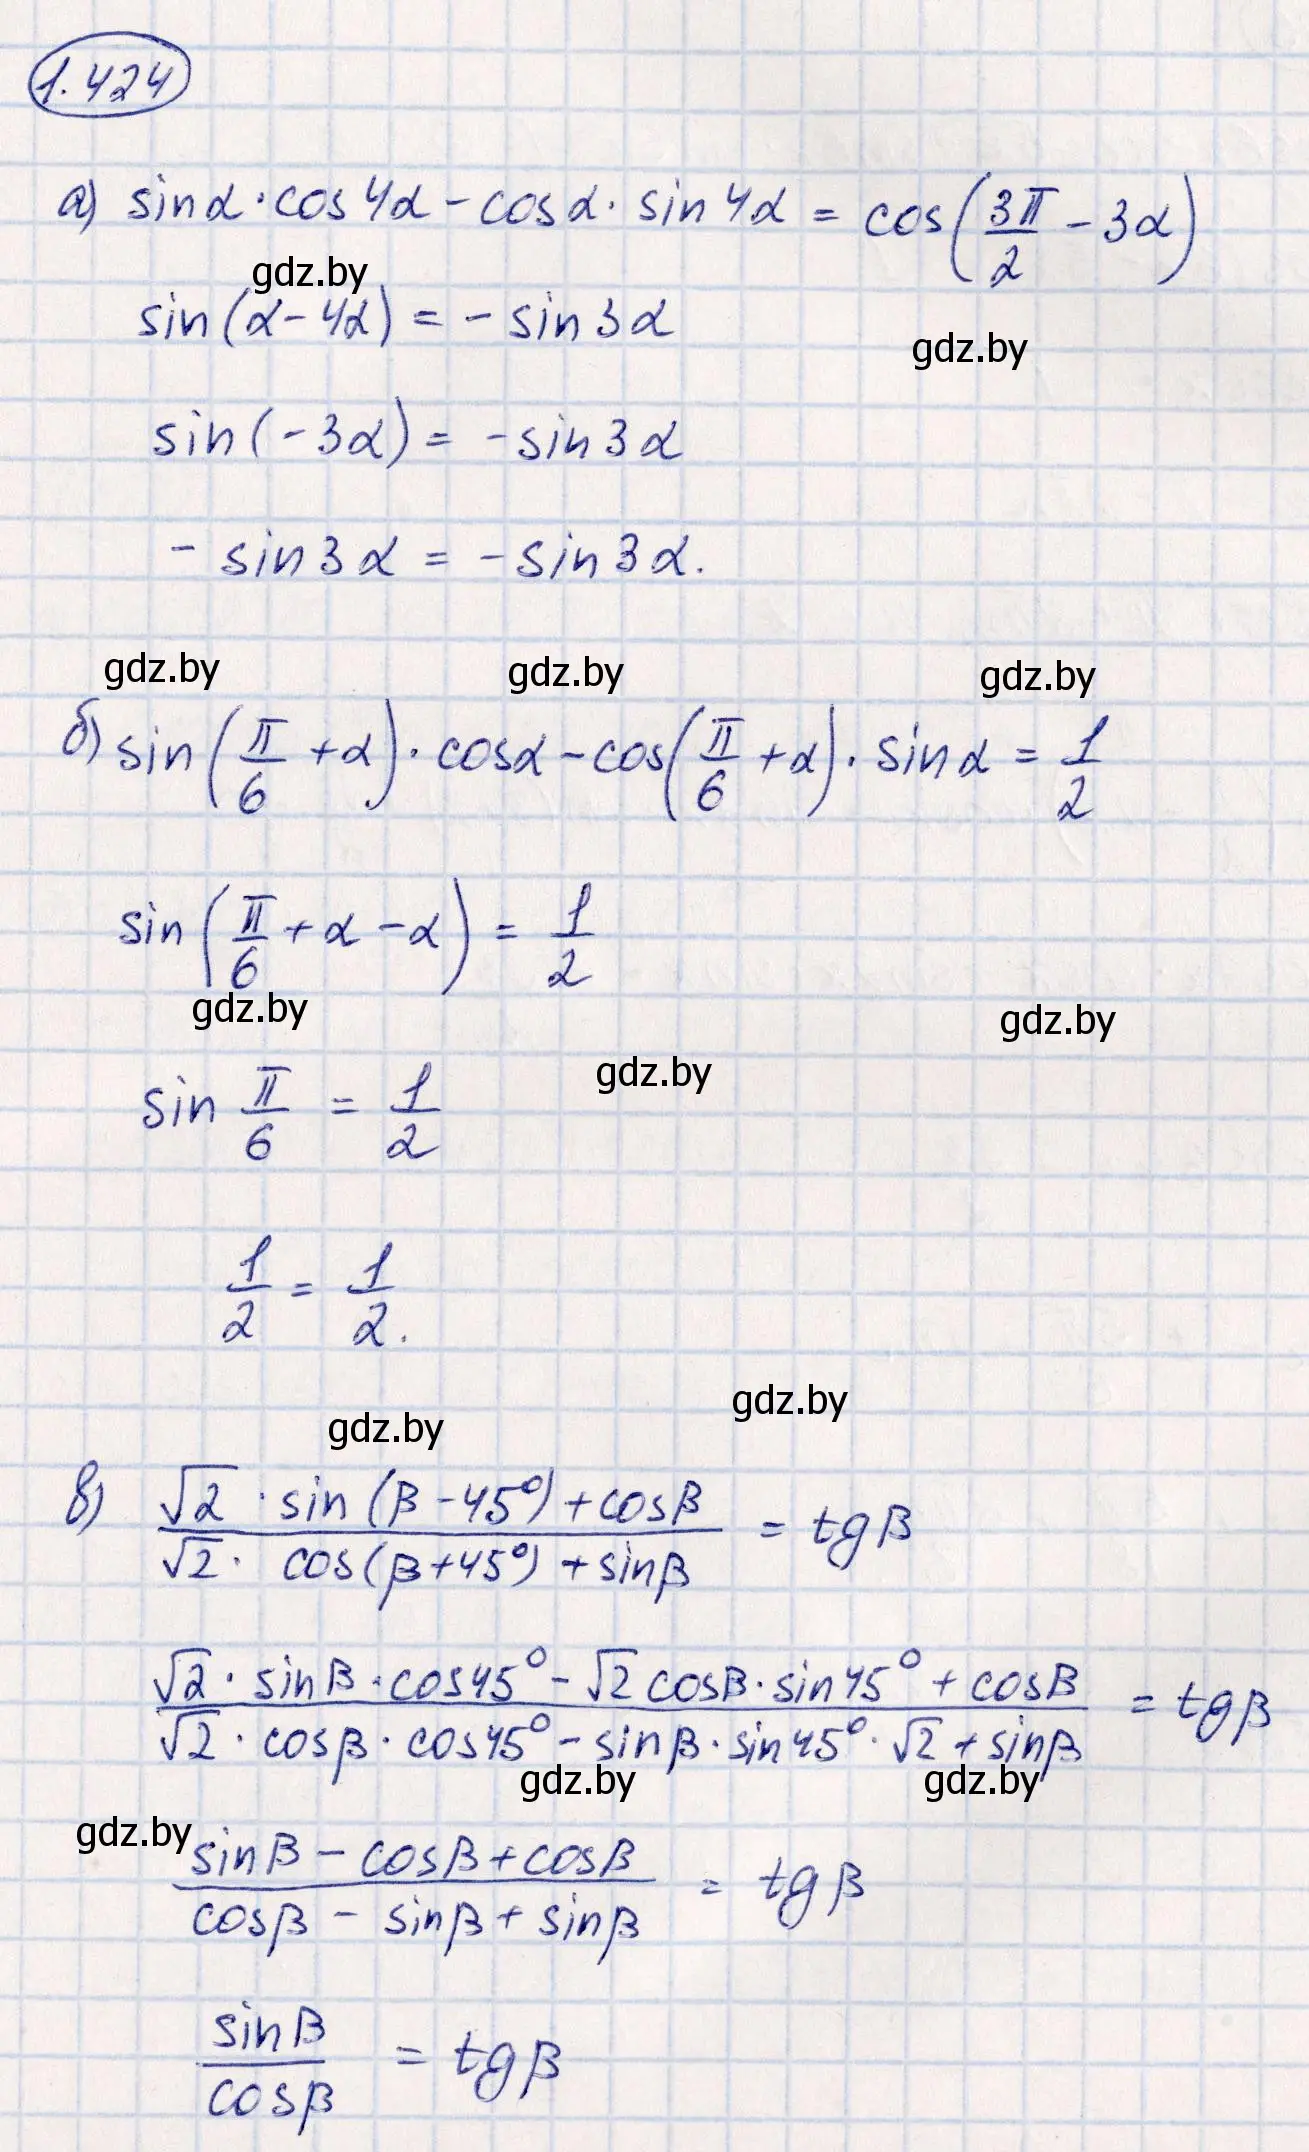 1.424
а) sinα·cos4α - cosα·sin4α = cos(3π/2 - 3α)
gdz.by
sin(α-4α) = -sin3α
gdz.by
sin(-3α) = -sin3α
-sin3α = -sin3α.
gdz.by gdz.by gdz.by
б) sin(π/6 +α)·cosα - cos(π/6 +α)·sinα = 1/2
sin(π/6 + α - α) = 1/2
gdz.by gdz.by
gdz.by
sin π/6 = 1/2
1/2 = 1/2.
gdz.by
gdz.by
в) (√2·sin(β-45°)+cosβ)/(√2·cos(β+45°)+sinβ) = tgβ
(√2·sinβ·cos45° - √2cosβ·sin45° + cosβ)/(√2·cosβ·cos45° - sinβ·sin45°·√2 + sinβ) = tgβ
gdz.by gdz.by
gdz.by
(sinβ - cosβ + cosβ)/(cosβ - sinβ + sinβ) = tgβ
sinβ/cosβ = tgβ